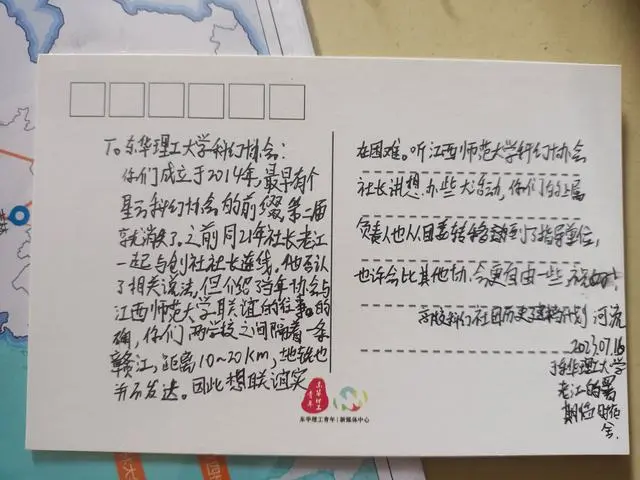 To 东华理工大学科幻协会：
你们成立于2014年，最早有个
星云科幻协会的前缀，第二届
就消失了。之前同21年社长老江
一起与创社社长连线，他否认
了相关说法，但们忆当年协会与
江西师范大学联谊的往事。的
确，你们两学校之间隔着一条
赣江，距离10~20km，地铁也
并不发达。因此想联谊实
在困难。听江西师范大学科幻协会
社长讲想办些大活动，你们的上属
负责人也从团委转移到了指导单位，
也许会比其他协会更自由一些
科幻社团历史建档计划 河流
2023.07.16
于东华理工大学
老江的署
期临时宿
舍
东华理工
青年
东华理工青年|新媒体中心